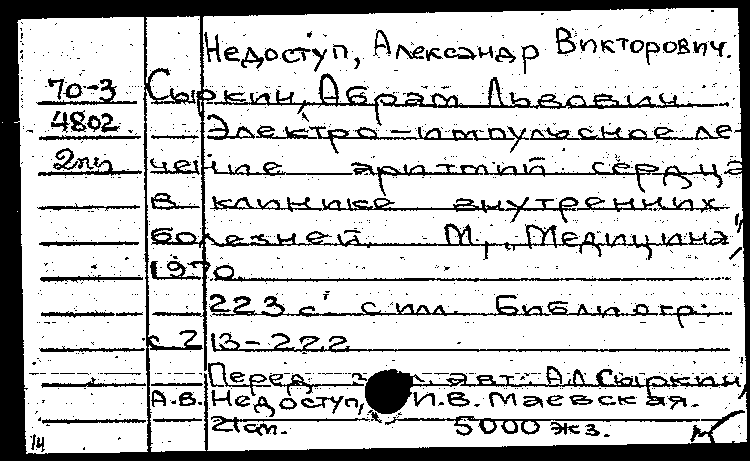 Недоступ, Александр Викторович.
70-3 Сыркин, Абрам Львович.
4802 Электро-импульсное ле-
чение аритмий сердца
в клинике внутренних
болезней. М., "Медицина",
1970.
223 с. с илл. Библиогр:
с. 213-222
Перед загл. авт.: А.Л. Сыркин,
А.В. Недоступ, И.В. Маевская.
21 см. 5000 экз.
14